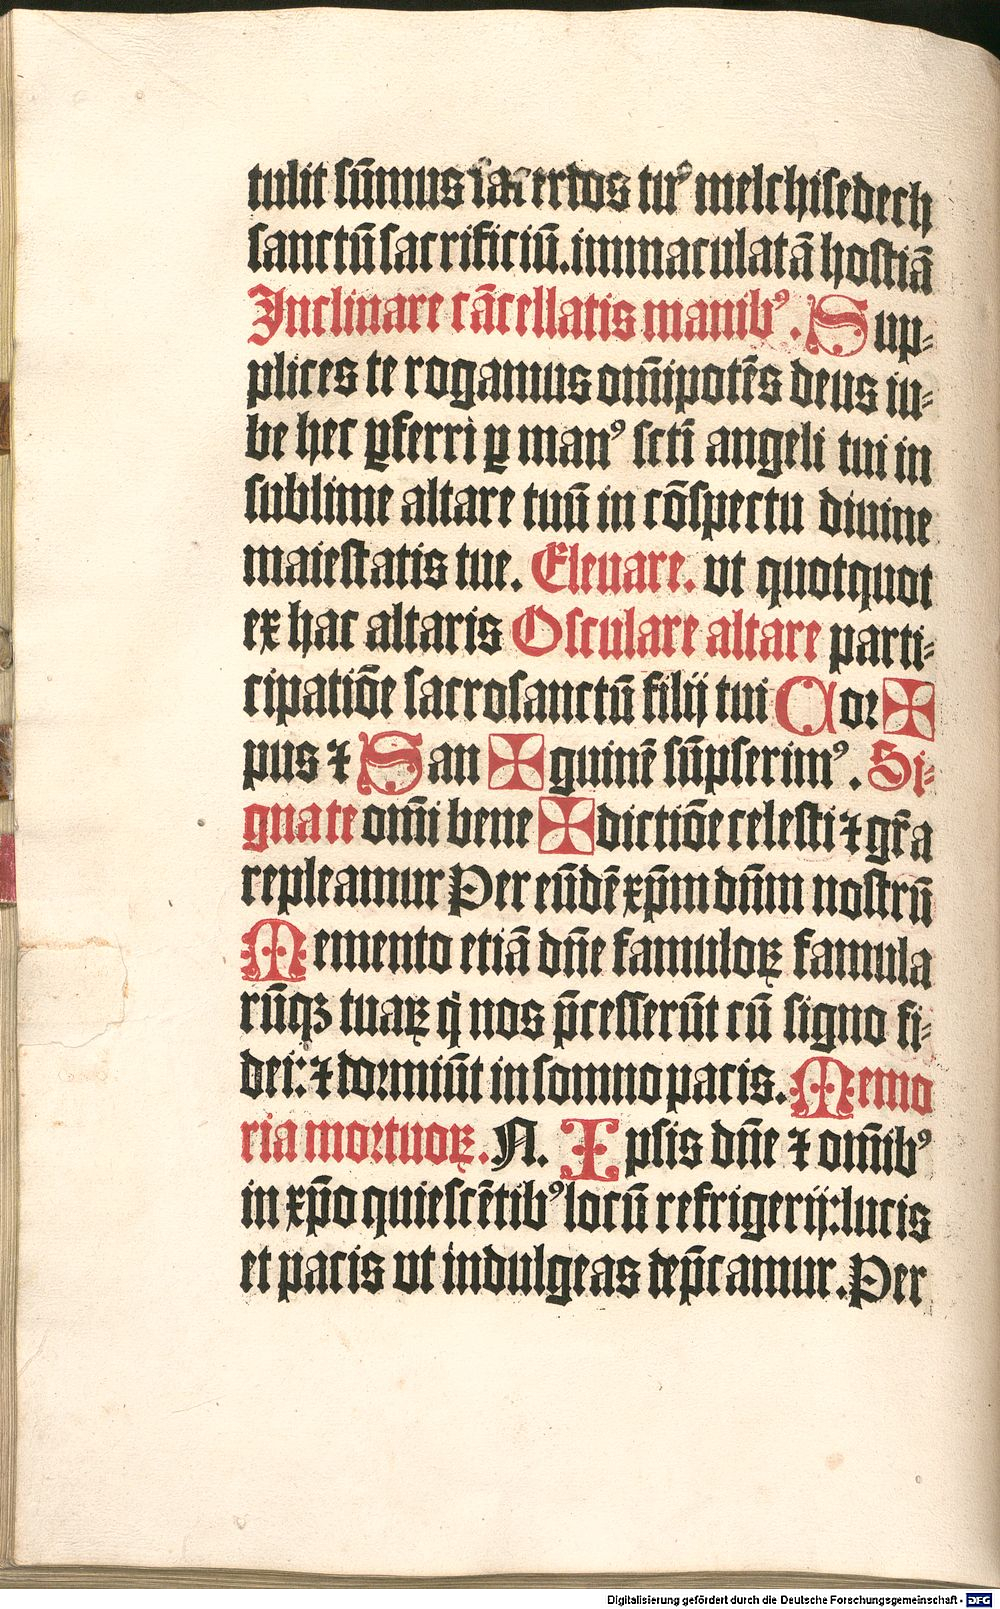 tulit su̅mus sacerdos tu⁹ melchisedech
sanctu̅ sacrificiu̅. immaculata̅ hostia̅
Inclinare ca̅cellatis manib⁹. Sup⸗
plices te rogamus om̅ipote̅s deus iu⸗
be hec ꝑferri ꝑ man⁹ scti̅ angeli tui in
sublime altare tuu̅ in co̅spectu diuine
maiestatis tue. Eleuare. vt quotquot
ex hac altaris Osculare altare parti⸗
cipatio̅e sacrosanctu̅ filij tui Cor ✠
pus ⁊ San ✠ guine̅ su̅pserim⁹. Si⸗
gnate om̅i bene ✠ dictio̅e celesti ⁊ gr̅a
repleamur Per eu̅de̅ xp̅m dn̅m nostru̅
Memento etia̅ dn̅e famuloꝝ famula
ru̅qꝫ tuaꝝ q̇ nos p̅cesseru̅t cu̅ signo fi⸗
dei: ⁊ dormiu̅t in somno pacis. Memo
ria mortuoꝝ. N. Ipsis dn̅e ⁊ om̅ib⁹
in xp̅o quiesce̅tib⁹ locu̅ refrigerij: lucis
et pacis vt indulgeas dep̅camur. Per
Digitalisierung gefördert durch die Deutsche Forschungsgemeinschaft - DFG